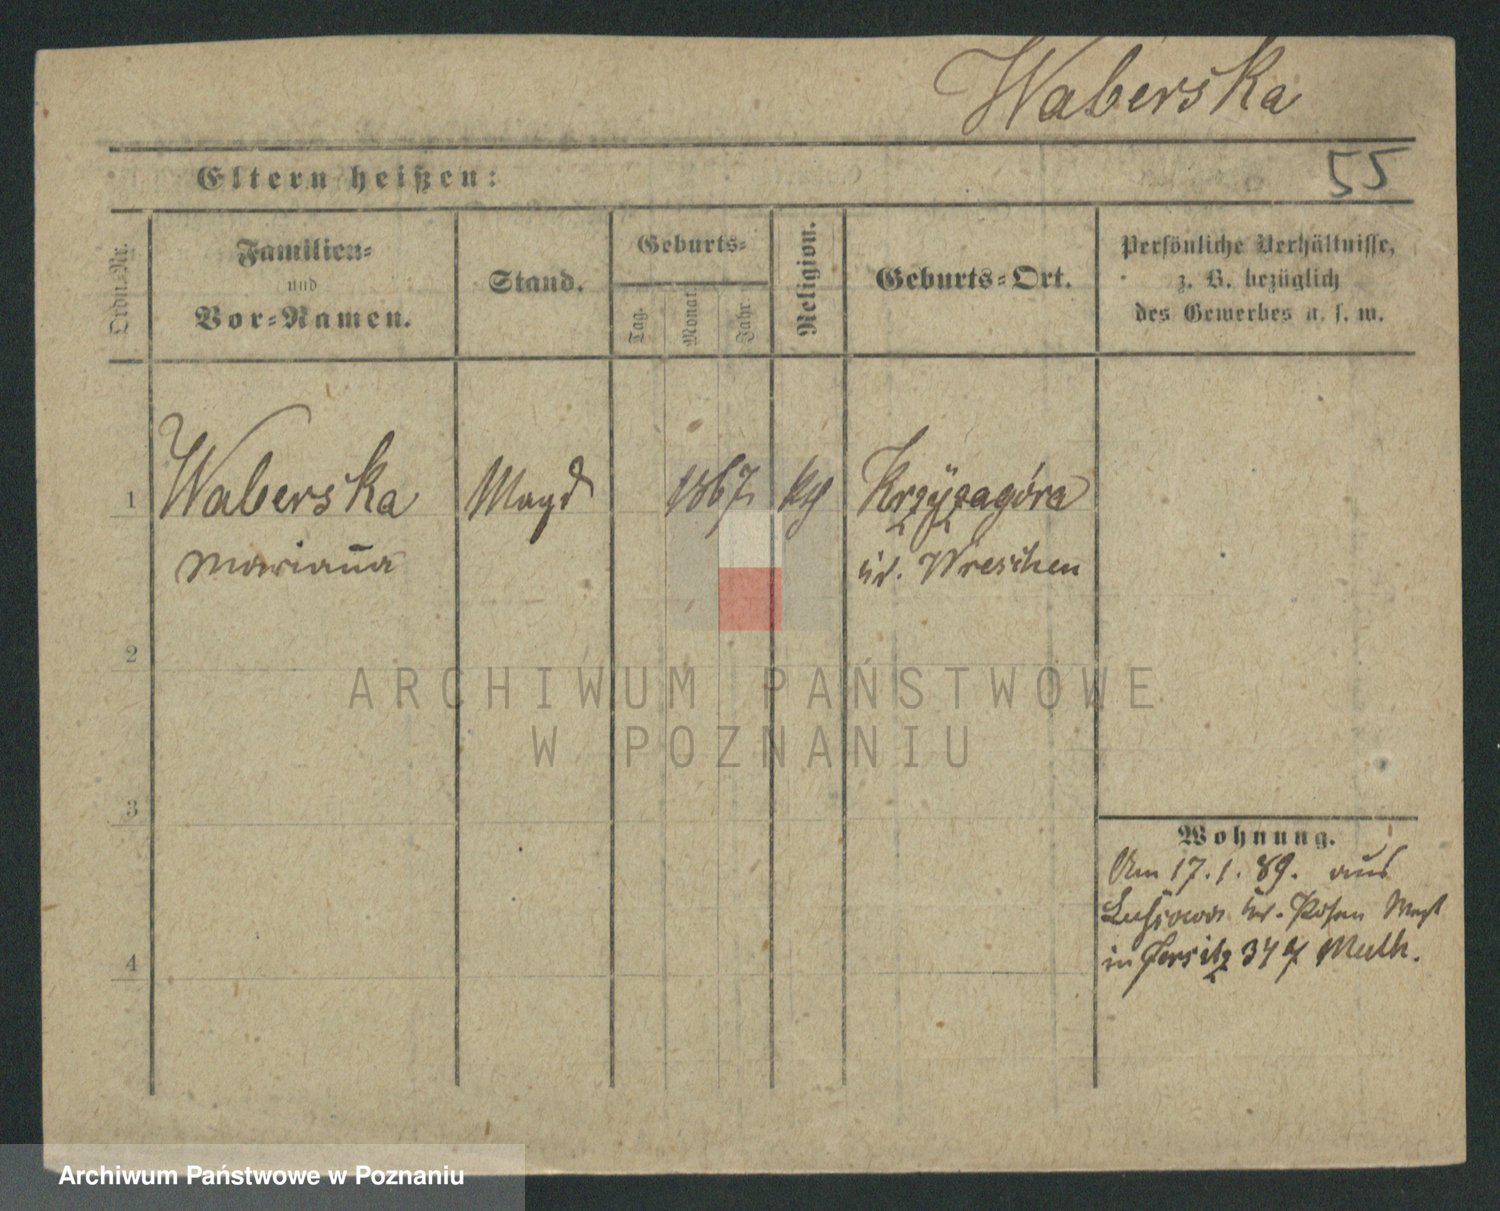 Waberska
55
Eltern heißen:
Ordn.-Nr.
Familien-
und
Vor-Namen.
Stand.
Geburts-
Tag.
Monat
Jahr
Religion.
Geburts-Ort.
Persönliche Verhältnisse,
z. B. bezüglich
des Gewerbes u. s. w.
1
Waberska
Magd
1867
kth
Krzyżagóra
Marianna
kr. Wreschen
2
ARCHIWUM PAŃSTWOWE
W POZNANIU
3
Wohnung.
Am 17.1.89. aus
kr. Posen West
in Jersitz 347
4
Archiwum Państwowe w Poznaniu